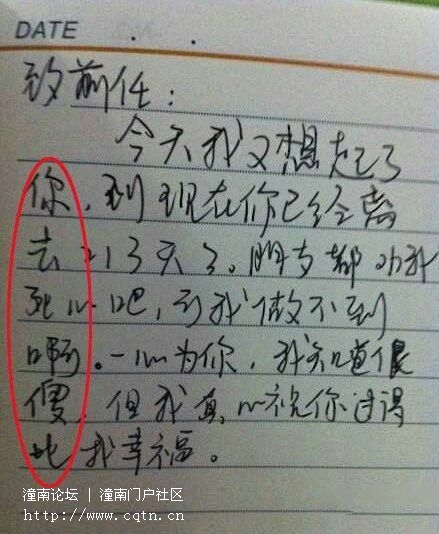 DATE
致前任：
今天我又想起了
你，到现在你已经离
去213天了。朋友都劝我
死心吧，可我做不到
啊。一心为你，我知道很
傻，但我真心祝你过得
比我幸福。
潼南论坛 | 潼南门户社区
http://www.cqtn.cn